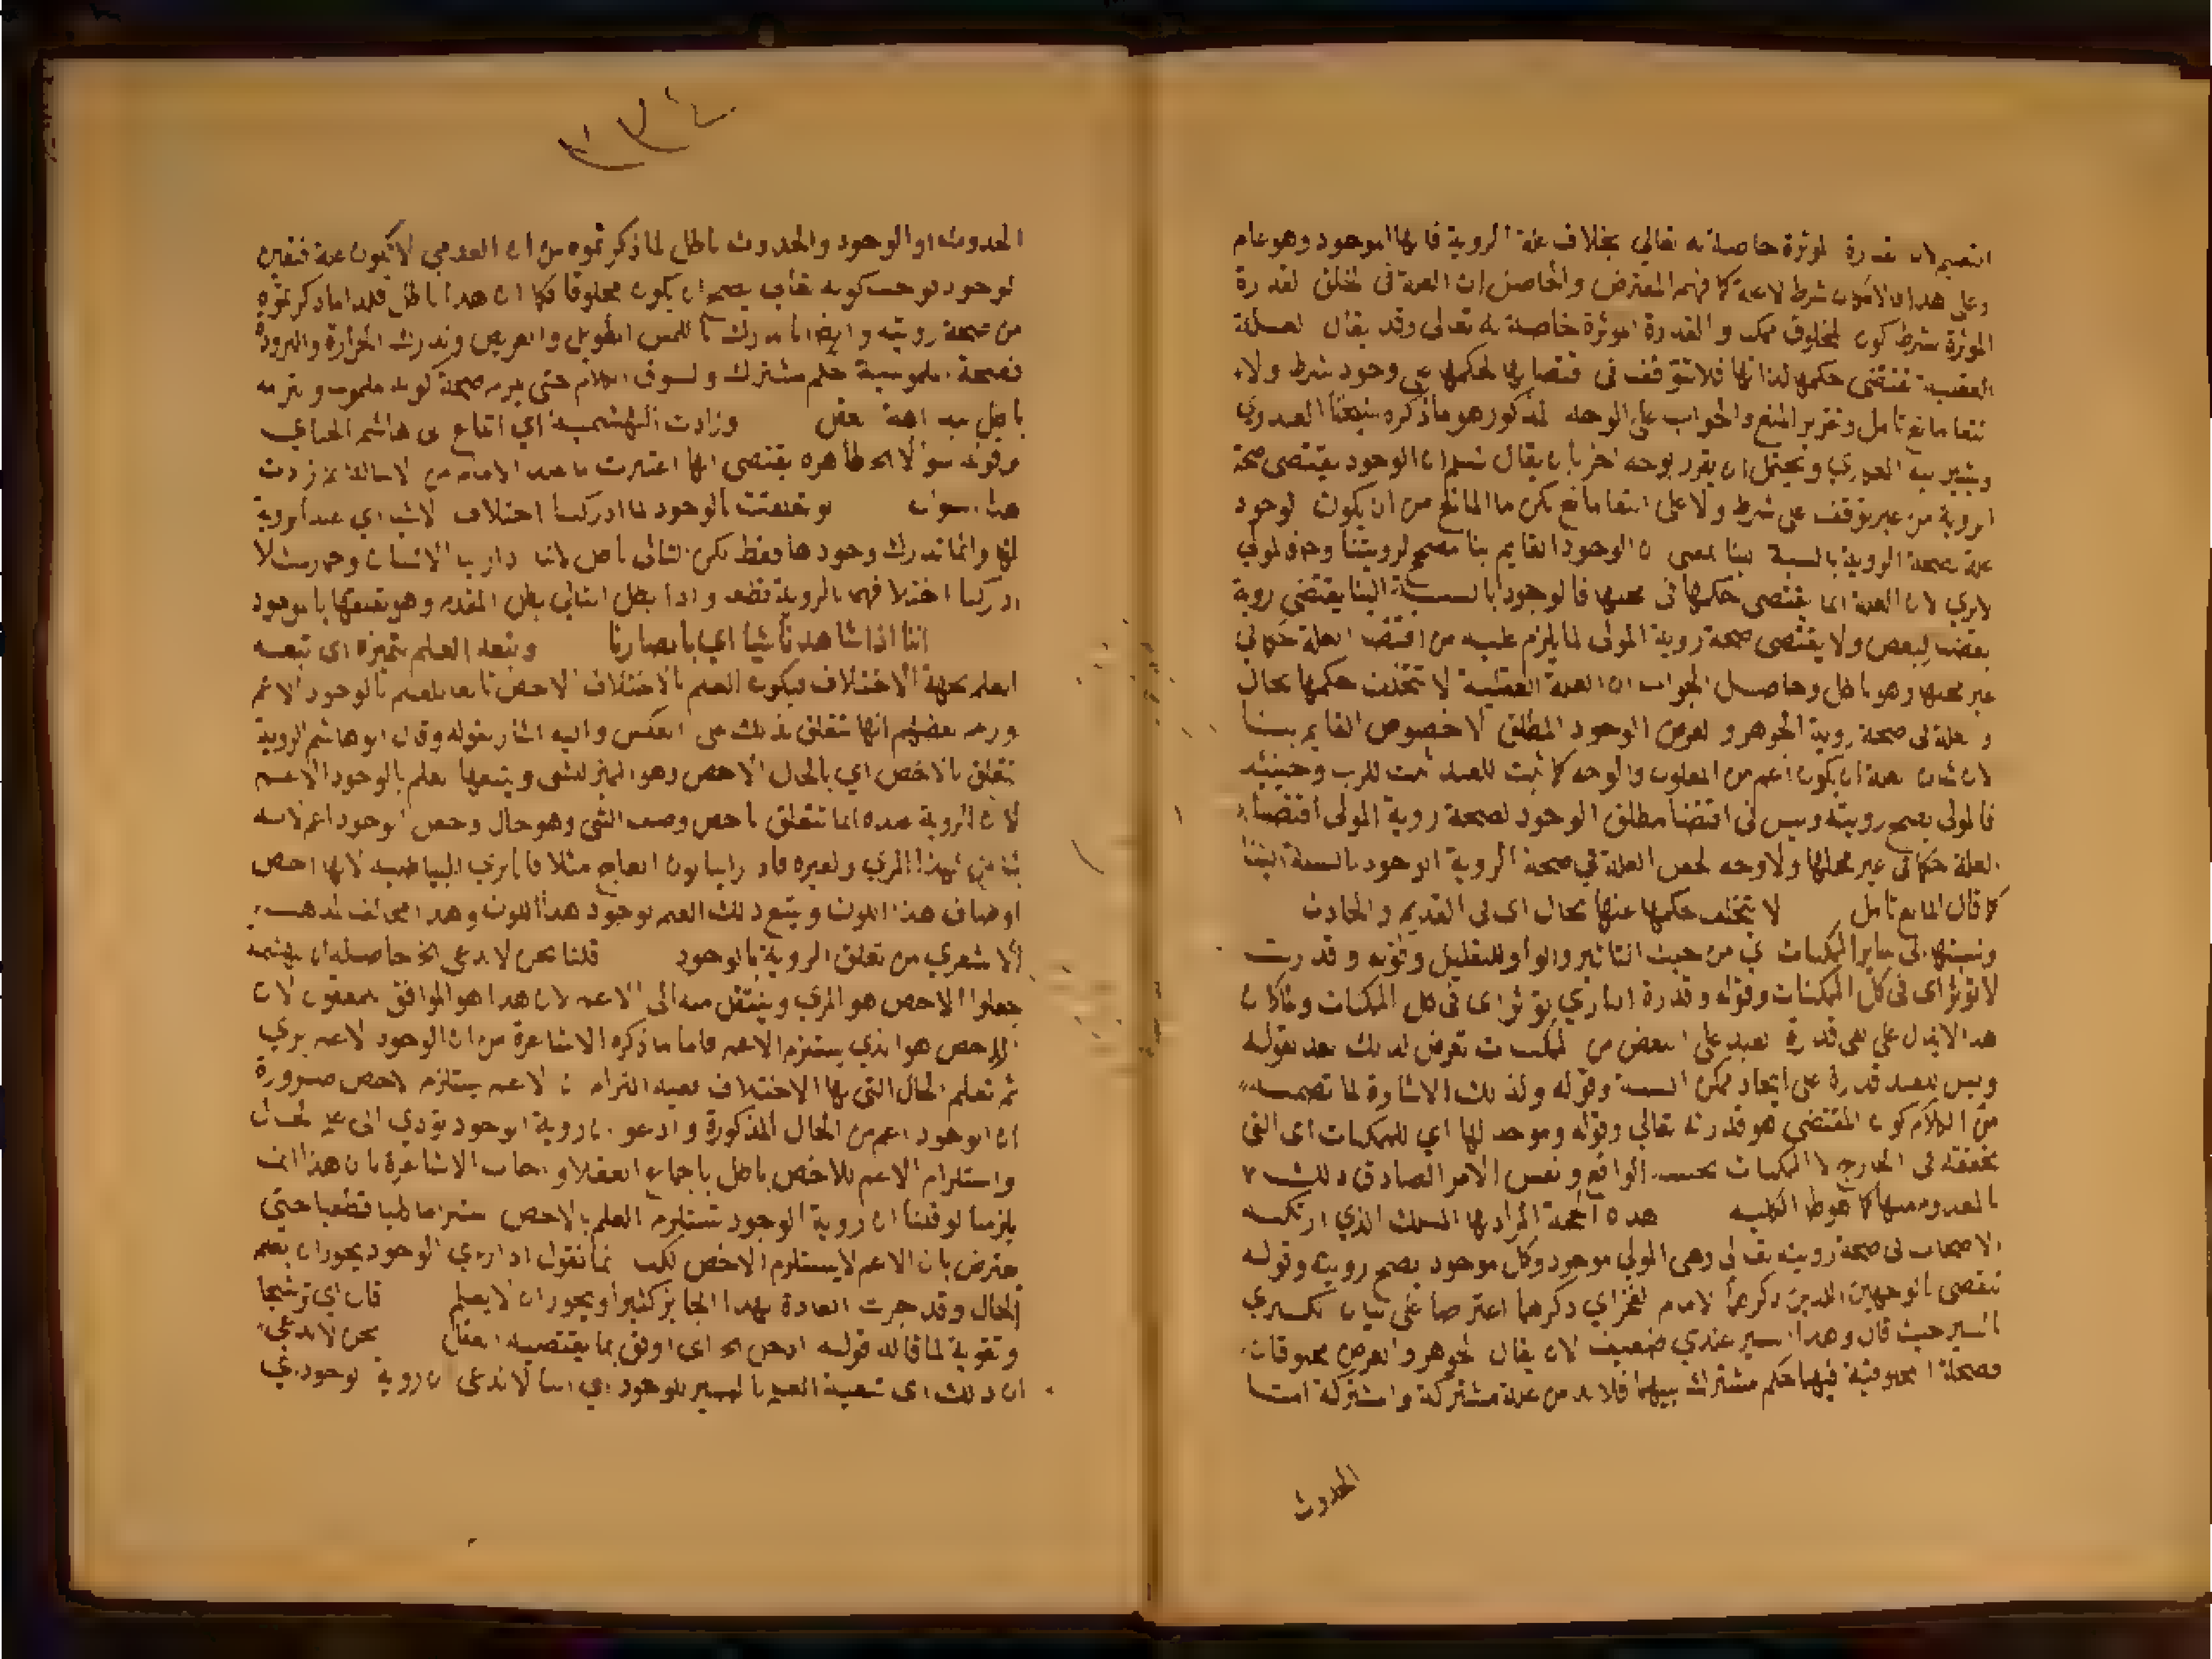 القديم لان القدرة المؤثرة خاصة به تعالى بخلاف علة الروية فانها الموجود وهو عام
وعلى هذا ان الامكان شرط لا علة كما فهم المعترض والحاصل ان العلة في الخلق القدرة
المؤثرة بشرط كون المخلوق ممكنا والقدرة المؤثرة خاصة به تعالى وقد يقال العلة
العقلية تقتضي حكمها لذاتها فلا تتوقف في اقتضائها لحكمها على وجود شرط ولا
انتفا مانع تامل وتقرير المنع والجواب على الوجه المذكور هو ما ذكره شيخنا العدوي
ويشير له الغوري ويحتمل ان يقرر بوجه اخر بان يقال نسلم ان الوجود يقتضي صحة
الروية من غير توقف على شرط ولا على انتفا مانع لكن ما المانع من ان يكون الوجود
علة لصحة الروية بالنسبة لنا بمعنى ان الوجود القايم بنا مصحح لرويتنا وحق المولى
لا يرى لان العلة انما تقتضي حكمها في محلها فالوجود بالنسبة الينا يقتضي روية
بعضنا لبعض ولا يقتضي صحة روية المولى لما يلزم عليه من اقتضا العلة حكما في
غير محلها وهو باطل وحاصل الجواب ان العلة العقلية لا يتخلف حكمها بحال
والعلة في صحة روية الجوهر والعرض الوجود المطلق لا خصوص القايم بنا
لان شان العلة ان يكون اعم من المعلول والوجه كما ثبت للعبد ثبت للرب وحينئذ
فالمولى يصح رويته وليس في اقتضا مطلق الوجود لصحة روية المولى اقتضا
العلة حكما في غير محلها ولا وجه لخص العلة في صحة الروية الوجود بالنسبة الينا
كما قال المانع تامل لا يتخلف حكمها عنها بحال اي في القديم والحادث
ونسبتها الى ساير الممكنات اي من حيث التاثير والواو للتعليل وقوله وقدرت
لا تؤثر اي في كل الممكنات وقوله وقدرة الباري تؤثر اي في كل الممكنات ولما كان
هذا لا يدل على نفي قدرة العبد على البعض من الممكنات تعرض لذلك بعد بقوله
وليس للعبد قدرة على ايجاد ممكن البتة وقوله ولذلك الاشارة لما تضمنه
من الكلام كون المقتضي هو قدرته تعالى وقوله وموجد لها اي للممكنات اي التي
تحققه في الخارج لا الممكنات بحسب الواقع ونفس الامر الصادق ذلك
بالمعدوم منها كما هو ظ الكلية هذه الحجة المراد بها المسلك الذي ارتكبه
الاصحاب في صحة رويته تعالى وهي المولى موجود وكل موجود يصح رويته وقوله
تنقضي بالوجهين الذين ذكرهما الامام الفخر اي ذكرهما اعتراضا على بيان الكبرى
بالسبر حيث قال وهذا السبر عندي ضعيف لانه يقال الجوهر والعرض مخلوقان
فصحة المخلوقية فيهما حكم مشترك بينهما فلا بد من علة مشتركة والمشتركة اما
الحدوث
الحدوث او الوجود والحدوث باطل لما ذكرتموه من ان العدمي لا يكون علة فتعين
الوجود فوجب كونه تعالى يصح ان يكون مخلوقا فكما ان هذا باطل فكذا ما ذكرتموه
من صحة رويته وايضا انا ندرك باللمس الطويل والعريض وندرك الحرارة والبرودة
فصحة الملموسية حكم مشترك ونسوق الكلام حتى يلزم صحة كونه ملموسا والتزامه
باطل ببداهة العقل وزادت البهشمية اي اتباع ابي هاشم الجبائي
وقوله سوالا الخ ظاهره يقتضي انها اعتبرت ما عند الامام من الاسئلة ثم زادت
هذا السوال لو تعلقت بالوجود لما ادركنا اختلاف الاشيا اي عند الروية
لها وانما تدرك وجودها فقط لكن التالي باطل لانا اذا راينا الانسان وحمارا مثلا
ادركنا اختلافهما بالروية قطعا واذا بطل التالي بطل المقدم وهو تعلقها بالوجود
اننا اذا شاهدنا شيا اي بابصارنا ويتبعه العلم بتميزه اي تبعه
العلم بجهة الاختلاف فيكون العلم بالاختلاف الاخص تابعا للعلم بالوجود الاعم
وزعم بعضهم انها تتعلق بذلك على العكس واليه اشار بقوله وقال ابو هاشم الروية
تتعلق بالاخص اي بالحال الاخص وهو المميز للشي ويتبعها العلم بالوجود الاعم
لان الروية عنده انما تتعلق باخص وصف الشي وهو حال وحصل الوجود اعم لانه
ثابت لهذا المرئي ولغيره فاذا راينا لون العاج مثلا فانا نرى البياضية لانها اخص
اوصاف هذا اللون ويتبع ذلك العلم بوجود هذا اللون وهذا مخالف لمذهب
الاشعري من تعلق الروية بالوجود قلنا نحن لا ندعي الخ حاصله ان البهشمية
جعلوا الاخص هو المرئي وينتقل منه الى الاعم لان هذا هو الموافق للمعقول لان
الاخص هو الذي يستلزم الاعم فاما ما ذكره الاشاعرة من ان الوجود الاعم يرى
ثم تعلم الحال التي بها الاختلاف ففيه التزام ان الاعم يستلزم الاخص ضرورة
ان الوجود اعم من الحال المذكورة وادعوا ان روية الوجود تؤدي الى علم الحال
واستلزام الاعم للاخص باطل باجماع العقلا واجاب الاشاعرة بان هذا انما
يلزمنا لو قلنا ان روية الوجود تستلزم العلم بالاخص استلزاما كليا قطعيا حتى
يعترض بان الاعم لا يستلزم الاخص لكنا انما نقول اذا رئي الوجود يجوز ان يعلم
الحال وقد جرت العادة بهذا الجايز كثيرا ويجوز ان لا يعلم قال اي ترشيحا
وتقوية لما قاله قوله ادخل الخ اي اوفق بما يقتضيه العقل نحن لا ندعي
ان ذلك اي تبعية العلم بالتمييز للوجود اي اننا لا ندعي ان روية الوجود اي